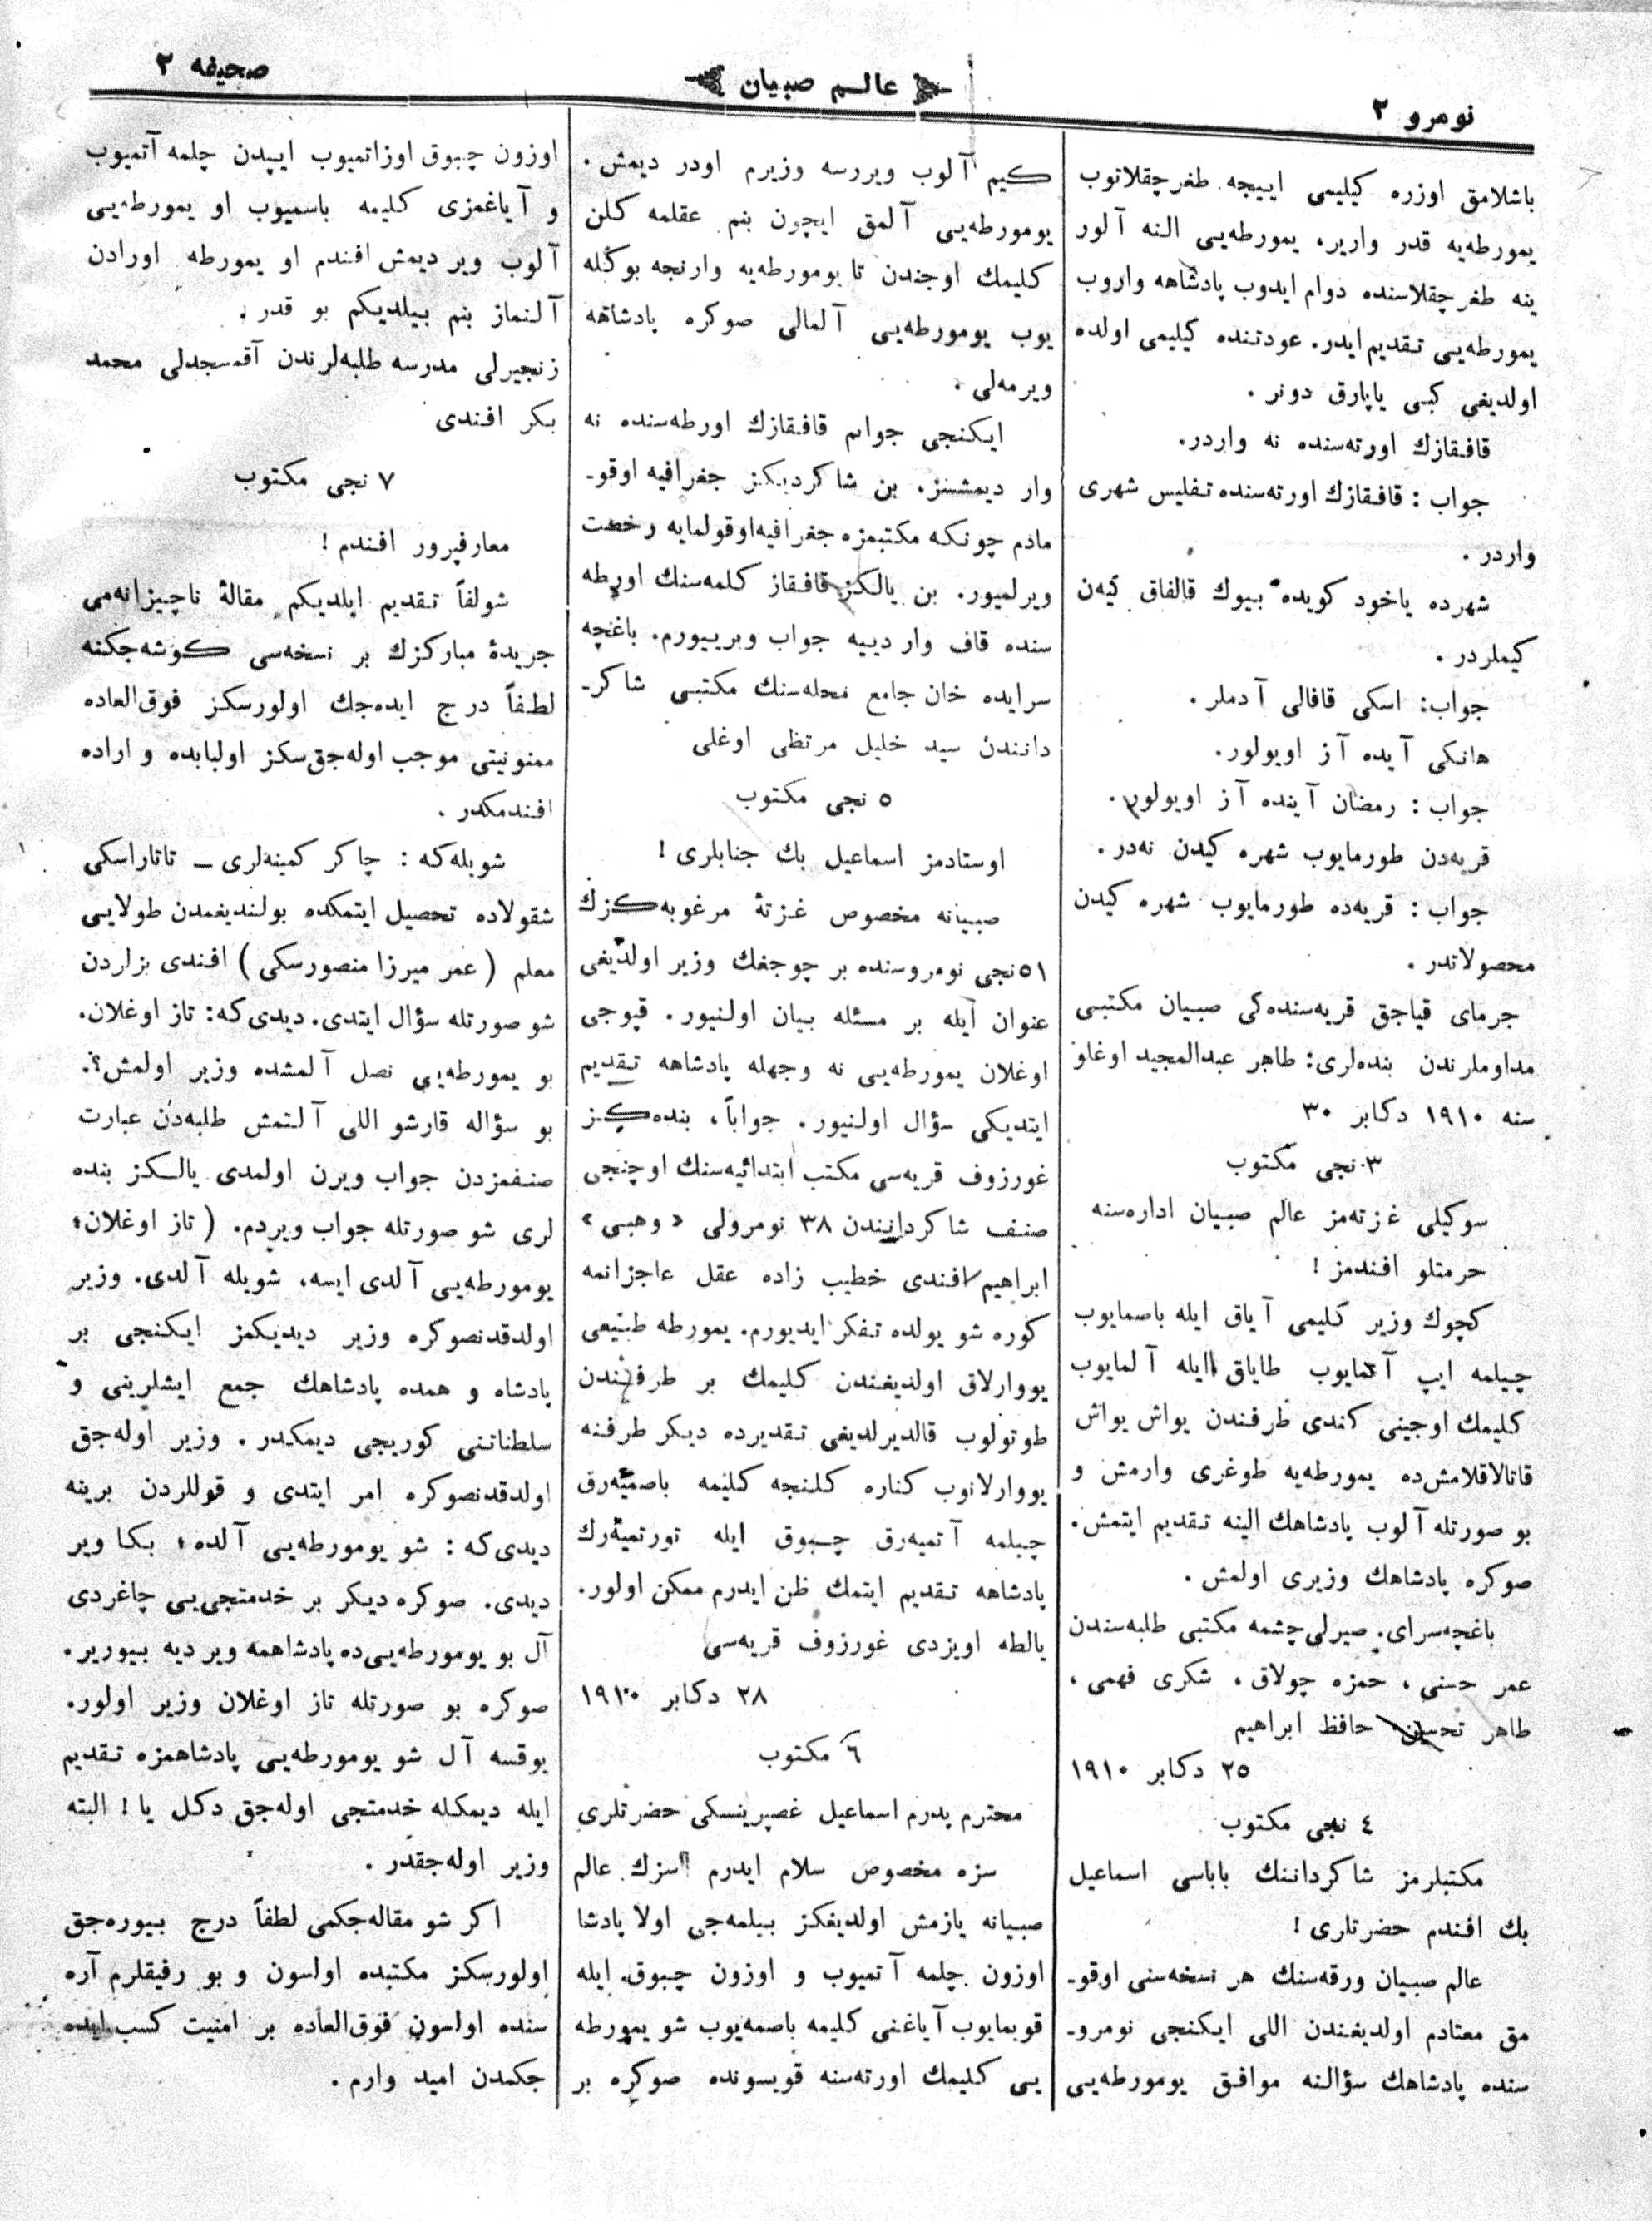 نومرو ٢
عالم صبيان
صحيفه ٢
باشلامق اوزره كيليمى اييچه طغرچقلاتوب
يمورطه‌يه قدر وارير، يمورطه‌يى النه آلور
ينه طغرچقلاسنده دوام ايدوب پادشاهه واروب
يمورطه‌يى تقديم ايدر. عودتنده كيليمى اولده
اولديغى كبى ياپارق دونر.
قافقازك اورته‌سنده نه واردر.
جواب: قافقازك اورته‌سنده تفليس شهرى
واردر.
شهرده ياخود كويده بيوك قالفاق كيه‌ن
كيملردر.
جواب: اسكى قافالى آدملر.
هانكى آيده آز اويولور.
جواب: رمضان آينده آز اويولور.
قريه‌دن طورمايوب شهره كيدن نه‌در.
جواب: قريه‌ده طورمايوب شهره كيدن
محصولاتدر.
جرماى قياجق قريه‌سنده‌كى صبيان مكتبى
مداوملرندن بنده‌لرى: طاهر عبدالمجيد اوغلو
سنه ١٩١٠ دكابر ٣٠
٣ نجى مكتوب
سوكيلى غزته‌مز عالم صبيان اداره‌سنه
حرمتلو افندمز!
كچوك وزير كليمى آياق ايله باصمايوب
چيلمه ايپ آتمايوب طاياق ايله آلمايوب
كليمك اوجينى كندى طرفندن يواش يواش
قاتالاقلامش‌ده يمورطه‌يه طوغرى وارمش و
بو صورتله آلوب پادشاهك الينه تقديم ايتمش.
صوكره پادشاهك وزيرى اولمش.
باغچه‌سراى. صيرلى چشمه مكتبى طلبه‌سندن
عمر حسنى، حمزه چولاق، شكرى فهمى،
طاهر تحسين حافظ ابراهيم
٢٥ دكابر ١٩١٠
٤ نجى مكتوب
مكتبلرمز شاكرداننك باباسى اسماعيل
بك افندم حضرتلرى!
عالم صبيان ورقه‌سنك هر نسخه‌سنى اوقو-
مق معتادم اولديغندن اللى ايكنجى نومرو-
سنده پادشاهك سؤالنه موافق يومورطه‌يى
كيم آلوب ويررسه وزيرم اودر ديمش.
يومورطه‌يى آلمق ايچون بنم عقلمه كلن
كليمك اوجندن تا يومورطه‌يه وارنجه بوكله
يوب يومورطه‌يى آلمالى صوكره پادشاهه
ويرمه‌لى.
ايكنجى جوابم قافقازك اورطه‌سنده نه
وار ديمشسز. بن شاكرديكز جغرافيه اوقو-
مادم چونكه مكتبمزه جغرافيه اوقولمايه رخصت
ويرلميور. بن يالكز قافقاز كلمه‌سنك اورطه
سنده قاف وار دييه جواب ويرييورم. باغچه
سرايده خان جامع محله‌سنك مكتبى شاكر-
دانندن سيد خليل مرتظى اوغلى
٥ نجى مكتوب
اوستادمز اسماعيل بك جنابلرى!
صبيانه مخصوص غزتهٔ مرغوبه‌كزك
٥١ نجى نومروسنده بر چوجغك وزير اولديغى
عنوان ايله بر مسئله بيان اولنيور. قپوجى
اوغلان يمورطه‌يى نه وجهله پادشاهه تقديم
ايتديكى سؤال اولنيور. جواباً، بنده‌كز
غورزوف قريه‌سى مكتب ابتدائيه‌سنك اوچنجى
صنف شاكردانندن ٣٨ نومرولى «وهبى»
ابراهيم افندى خطيب زاده عقل عاجزانمه
كوره شو يولده تفكر ايديورم. يمورطه طبيعى
يووارلاق اولديغندن كليمك بر طرفندن
طوتولوب قالديرلديغى تقديرده ديكر طرفنه
يووارلانوب كناره كلنجه كليمه باصميه‌رق
چيلمه آتميه‌رق چبوق ايله تورتميه‌رك
پادشاهه تقديم ايتمك ظن ايدرم ممكن اولور.
يالطه اويزدى غورزوف قريه‌سى
٢٨ دكابر ١٩١٠
٦ مكتوب
محترم پدرم اسماعيل غصپرينسكى حضرتلرى
سزه مخصوص سلام ايدرم سزك عالم
صبيانه يازمش اولديغكز بيلمه‌جى اولا پادشا
اوزون چلمه آتميوب و اوزون چبوق ايله
قوبمايوب آياغنى كليمه باصمه‌يوب شو يمورطه
يى كليمك اورته‌سنه قويسونده صوكره بر
اوزون چبوق اوزاتميوب ايپدن چلمه آتميوب
و آياغمزى كليمه باسميوب او يمورطه‌يى
آلوب وير ديمش افندم او يمورطه اورادن
آلنماز بنم بيلديكم بو قدر.
زنجيرلى مدرسه طلبه‌لرندن آقمسجدلى محمد
بكر افندى
٧ نجى مكتوب
معارفپرور افندم!
شولفاً تقديم ايلديكم مقالهٔ ناچيزانه‌مى
جريدهٔ مباركزك بر نسخه‌سى كوشه‌جكنه
لطفاً درج ايده‌جك اولورسكز فوق‌العاده
ممنونيتى موجب اوله‌جق‌سكز اولبابده و اراده
افندمكدر.
شويله‌كه: چاكر كمينه‌لرى - تاتاراسكى
شقولاده تحصيل ايتمكده بولنديغمدن طولايى
معلم (عمر ميرزا منصورسكى) افندى بزلردن
شو صورتله سؤال ايتدى. ديدى‌كه: تاز اوغلان.
بو يمورطه‌يى نصل آلمشده وزير اولمش؟.
بو سؤاله قارشو اللى آلتمش طلبه‌دن عبارت
صنفمزدن جواب ويرن اولمدى يالكز بنده
لرى شو صورتله جواب ويردم. (تاز اوغلان،
يومورطه‌يى آلدى ايسه، شويله آلدى. وزير
اولدقدنصوكره وزير ديديكمز ايكنجى بر
پادشاه و همده پادشاهك جمع ايشلرينى و
سلطناتنى كوريجى ديمكدر. وزير اوله‌جق
اولدقدنصوكره امر ايتدى و قوللردن برينه
ديدى‌كه: شو يومورطه‌يى آلده، بكا وير
ديدى. صوكره ديكر بر خدمتجى‌يى چاغردى
آل بو يومورطه‌يى‌ده پادشاهمه وير ديه بيورير.
صوكره بو صورتله تاز اوغلان وزير اولور.
يوقسه آل شو يومورطه‌يى پادشاهمزه تقديم
ايله ديمكله خدمتجى اوله‌جق دكل يا! البته
وزير اوله‌جقدر.
اكر شو مقاله‌جكمى لطفاً درج بيوره‌جق
اولورسكز مكتبده اولسون و بو رفيقلرم آره
سنده اولسون فوق‌العاده بر امنيت كسب ايده
جكمدن اميد وارم.